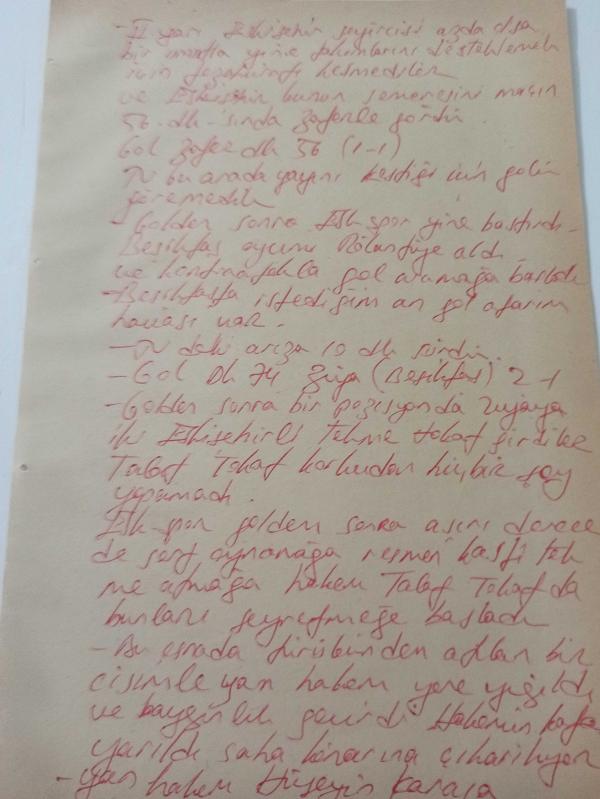 - II yarı Eskişehir seyircisi azda olsa
bir unutla yine takımlarını desteklemek
için tezahüratı kesmediler
ve Eskişehir bunun semeresini maçın
56. dk.'sında Zaferle gördü.
Gol Zafer dk 56 (1-1)
TV bu arada yayını kestiği için golü
göremedik
- Golden sonra Esk spor yine bastırdı.
Beşiktaş oyunu Rölantiye aldı
ve kontratakla gol aramağa başladı
- Beşiktaşta istediğim an gol atarım
havası var.
- TV deki arıza 10 dk sürdü.
- Gol Dk 74 Züya (Beşiktaş) 2-1
- Golden sonra bir pozisyonda Züyaya
iki Eskişehirli tekme tokat girdiler
Talat Tokat korkudan hiçbir şey
yapamadı.
Esk-spor golden sonra aşırı derece
de sert oynamağa resmen kasti tek
me atmağa hakem Talat Tokat da
bunları seyretmeğe başladı
- Bu esnada tirübünden atılan bir
cisimle yan hakem yere yığıldı
ve baygınlık geçirdi Hakemin kafa
yarıldı saha kenarına çıkarılıyor
- yan hakem Hüseyin Karaca